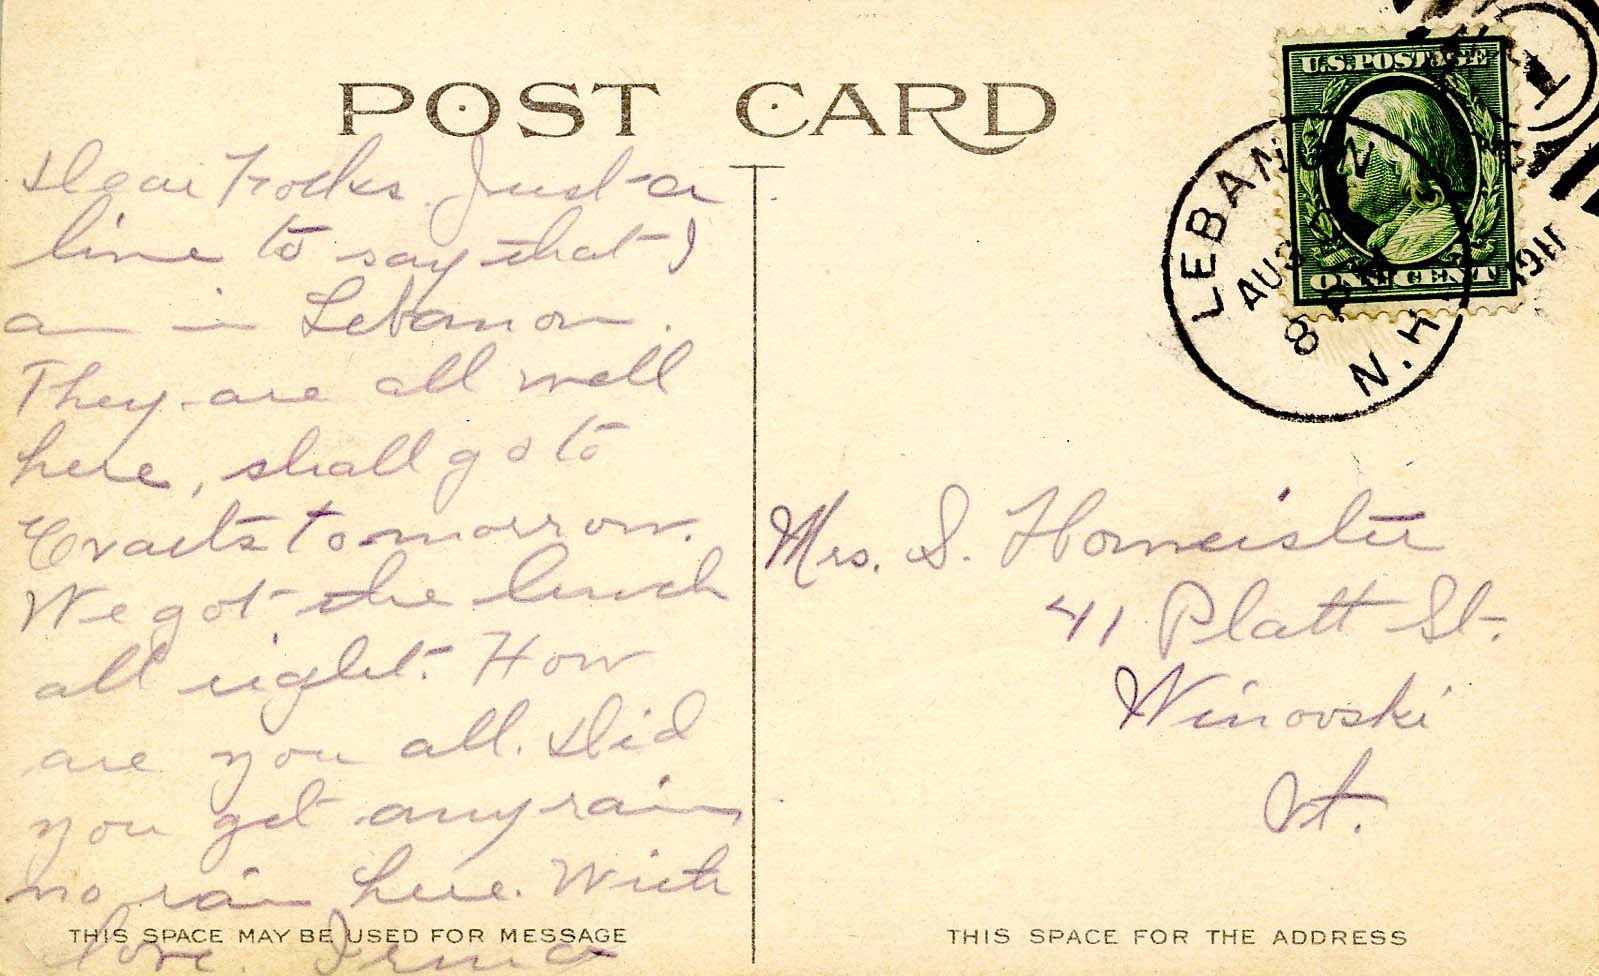 POST CARD
U.S. POSTAGE
ONE CENT
1
LEBANON
AUG
8 PM
1911
N.H.
Dear Folks. Just a
line to say that I
am in Lebanon.
They are all well
here, shall go to
tomorrow.
We got the lunch
all right. How
are you all. Did
you get any rain
no rain here. With
love. Irma
THIS SPACE MAY BE USED FOR MESSAGE
Mrs. S. Homeister
41 Platt St.
Winooski
Vt.
THIS SPACE FOR THE ADDRESS